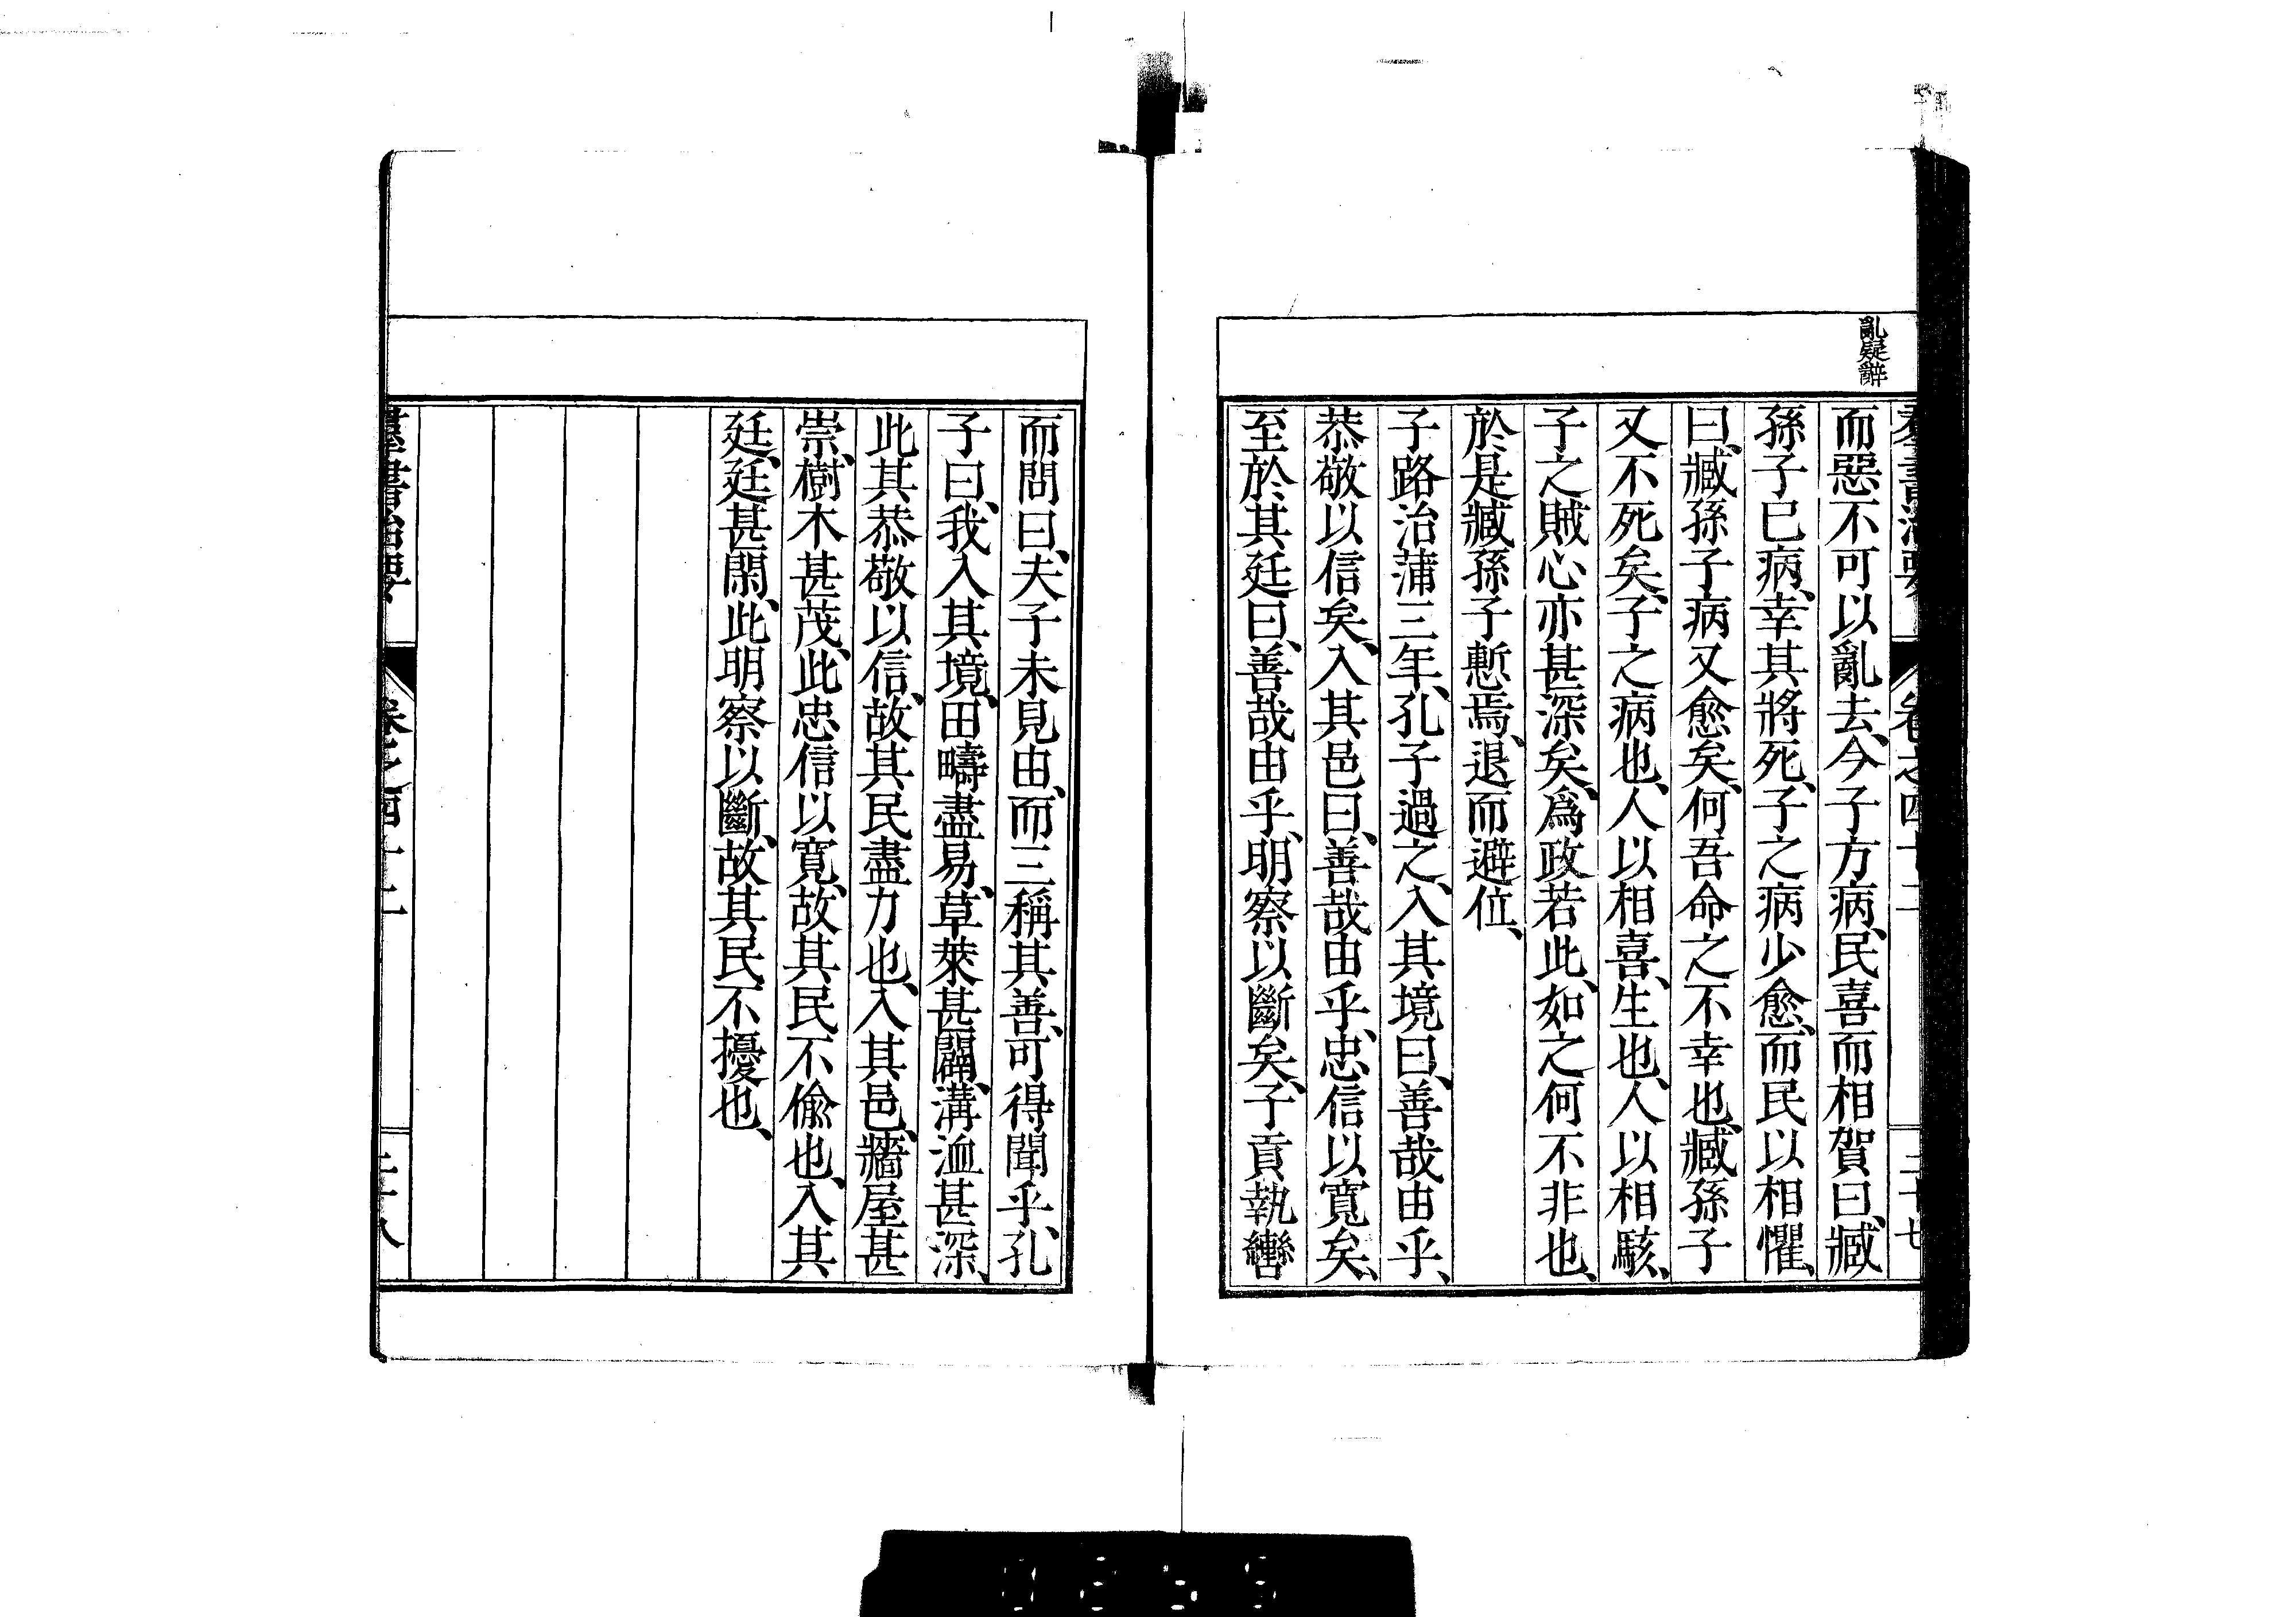 亂疑辭
羣書治要 卷之四十二 二十七
而惡不可以亂去、今子方病、民喜而相賀曰、臧
孫子已病、幸其將死、子之病少愈、而民以相懼、
曰、臧孫子病又愈矣、何吾命之不幸也、臧孫子
又不死矣、子之病也、人以相喜、生也、人以相駭、
子之賊心亦甚深矣、爲政若此、如之何不非也、
於是臧孫子慙焉、退而避位、
子路治蒲三年、孔子過之、入其境曰、善哉由乎、
恭敬以信矣、入其邑曰、善哉由乎、忠信以寬矣、
至於其廷曰、善哉由乎、明察以斷矣、子貢執轡
而問曰、夫子未見由、而三稱其善、可得聞乎、孔
子曰、我入其境、田疇盡易、草萊甚闢、溝洫甚深、
此其恭敬以信、故其民盡力也、入其邑、牆屋甚
崇、樹木甚茂、此忠信以寬、故其民不偷也、入其
廷、廷甚閑、此明察以斷、故其民不擾也、
羣書治要 卷之四十二 二十八